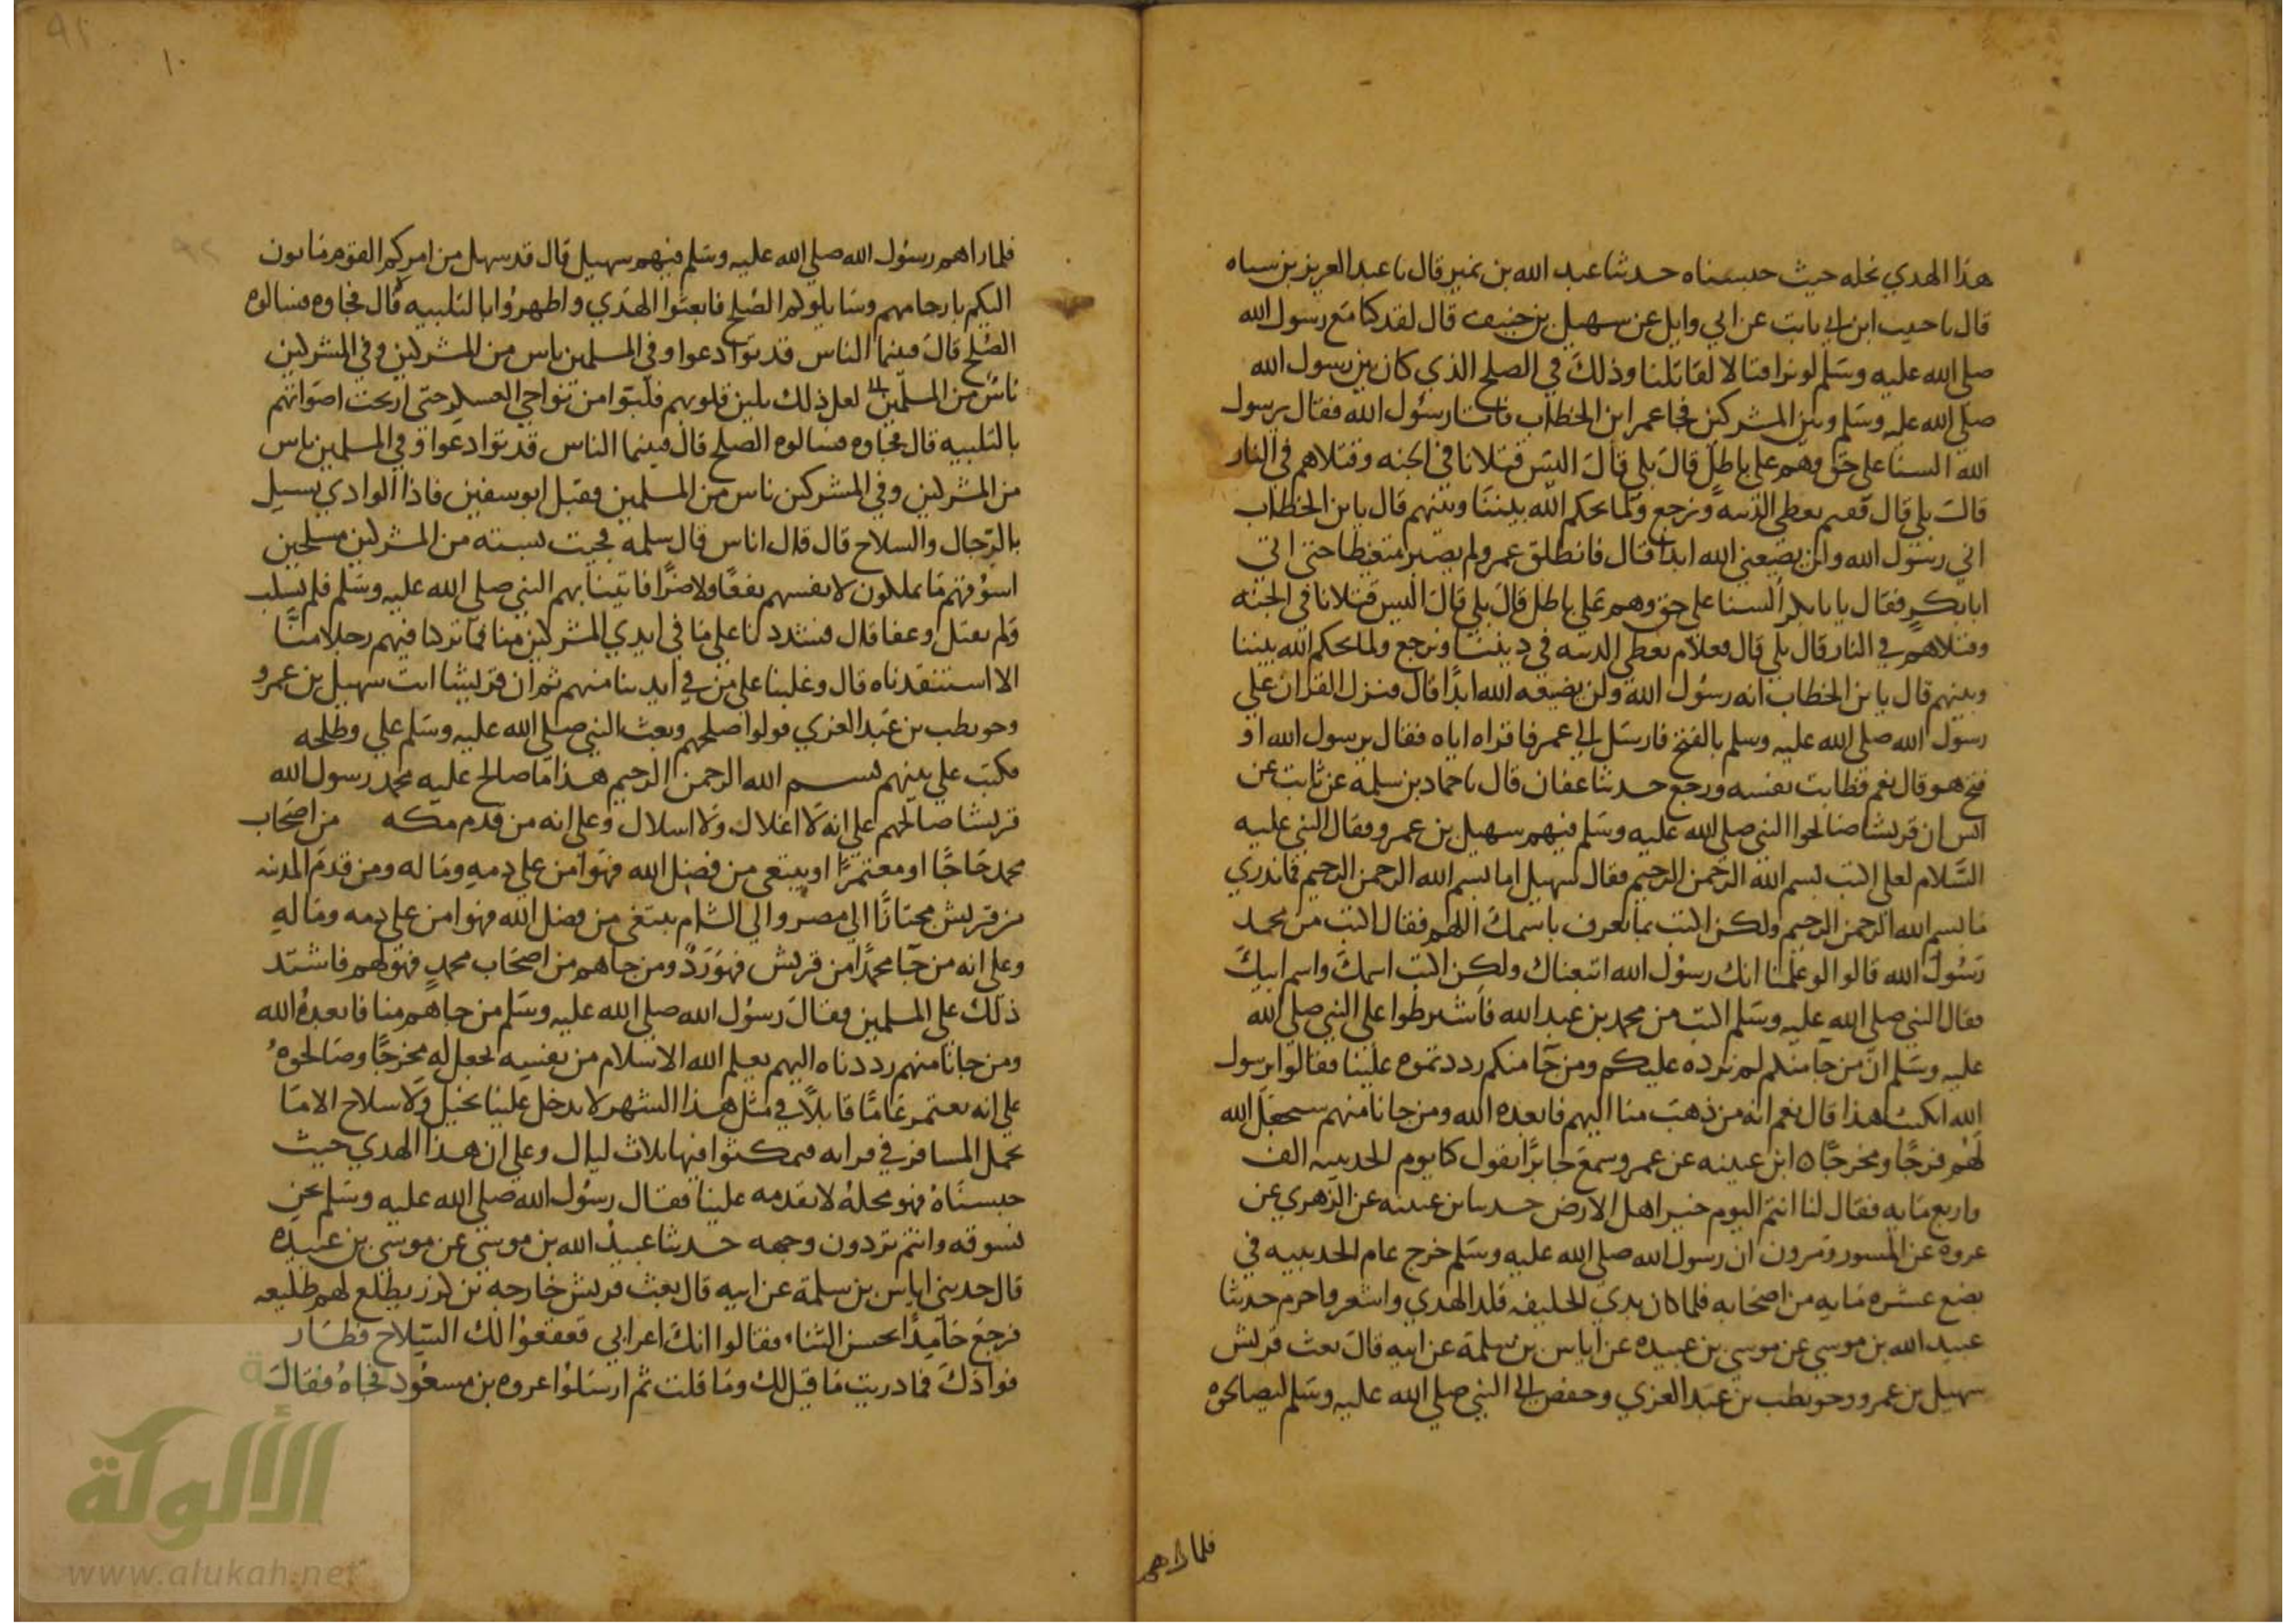 هذا الهدي نحله حيث حبسناه حدثنا عبد الله بن نمير قال نا عبد العزيز بن سياه
قال نا حبيب ابن ابي ثابت عن ابي وايل عن سهيل بن حنيف قال لقد كنا مع رسول الله
صلى الله عليه وسلم لو نرا قتالا لقاتلنا وذلك في الصلح الذي كان بين رسول الله
صلى الله عليه وسلم وبين المشركين فجا عمر ابن الخطاب فاتا رسول الله فقال يرسول
الله السنا على حق وهم على باطل قال بلى قال اليس قتلانا في الجنه وقتلاهم في النار
قال بلى قال ففيم نعطي الدنيه ونرجع ولما يحكم الله بيننا وبينهم قال يا بن الخطاب
اني رسول الله ولن يضيعني الله ابدا قال فانطلق عمر ولم يصبر متغيظا حتى اتى
ابا بكر فقال يا با بكر السنا على حق وهم على باطل قال بلى قال اليس قتلانا في الجنه
وقتلاهم في النار قال بلى قال فعلام نعطي الدنيه في ديننا ونرجع ولما يحكم الله بيننا
وبينهم قال يا بن الخطاب انه رسول الله ولن يضيعه الله ابدا قال فنزل القران على
رسول الله صلى الله عليه وسلم بالفتح فارسل الى عمر فاقراه اياه فقال يرسول الله او
فتح هو قال نعم فطابت نفسه ورجع حدثنا عفان قال نا حماد بن سلمة عن ثابت عن
انس ان قريشا صالحوا النبي صلى الله عليه وسلم فيهم سهيل بن عمرو فقال النبي عليه
السلام لعلي اكتب بسم الله الرحمن الرحيم فقال سهيل اما بسم الله الرحمن الرحيم فما ندري
ما بسم الله الرحمن الرحيم ولكن اكتب بما نعرف باسمك اللهم فقال اكتب من محمد
رسول الله قالوا لو علمنا انك رسول الله اتبعناك ولكن اكتب اسمك واسم ابيك
فقال النبي صلى الله عليه وسلم اكتب من محمد بن عبد الله فاشترطوا على النبي صلى الله
عليه وسلم ان من جا منكم لم نرده عليكم ومن جا منكم رددتموه علينا فقالوا يرسول
الله انكتب هذا قال نعم انه من ذهب منا اليهم فابعده الله ومن جانا منهم سيجعل الله
لهم فرجا ومخرجا ه ابن عيينه عن عمرو سمع جابرا يقول كنا يوم الحديبيه الف
واربع مايه فقال لنا انتم اليوم خير اهل الارض حدثنا بن عيينه عن الزهري عن
عروه عن المسور ومرون ان رسول الله صلى الله عليه وسلم خرج عام الحديبيه في
بضع عشره مايه من اصحابه فلما كان بذي الحليفه قلد الهدي واشعر واحرم حدثنا
عبيد الله بن موسى عن موسى بن عبيده عن اياس بن سلمة عن ابيه قال بعث قريش
سهيل بن عمرو وحويطب بن عبد العزي وحفص الى النبي صلى الله عليه وسلم ليصالحوه
فلما راهم
١٠
فلما راهم رسول الله صلى الله عليه وسلم فيهم سهيل قال قد سهل من امركم القوم ماتون
اليكم بارحامهم وسايلوكم الصلح فابعثوا الهدي واظهروا بالتلبيه قال فجاوه فسالوه
الصلح قال فبينما الناس قد توادعوا وفي المسلمين ناس من المشركين وفي المشركين
ناس من المسلمين لعل ذلك يلين قلوبهم فلبوا من نواحي العسكر حتى ارتجت اصواتهم
بالتلبيه قال فجاوه فسالوه الصلح قال فبينما الناس قد توادعوا وفي المسلمين ناس
من المشركين وفي المشركين ناس من المسلمين فقيل ابو سفين فاذا الوادي يسيل
بالرجال والسلاح قال قال اناس قال سلمه فجيت بسته من المشركين مسلحين
اسوقهم ما يملكون لانفسهم نفعا ولا ضرا فاتينا بهم النبي صلى الله عليه وسلم فلم يسلب
ولم يقتل وعفا قال فشددنا على ما في ايدي المشركين منا فما تركنا فيهم رجلا منا
الا استنقذناه قال وغلبنا على من في ايدينا منهم ثم ان قريشا اتت سهيل بن عمرو
وحويطب بن عبد العزي فولوا صلحهم وبعث النبي صلى الله عليه وسلم علي وطلحه
فكتب علي بينهم بسم الله الرحمن الرحيم هذا ما صالح عليه محمد رسول الله
قريشا صالحهم على انه لا اغلال ولا اسلال وعلى انه من قدم مكه من اصحاب
محمد حاجا او معتمرا او يبتغي من فضل الله فهو امن على دمه وماله ومن قدم المدينه
من قريش مجتازا الى مصر والى الشام يبتغي من فضل الله فهو امن على دمه وماله
وعلى انه من جا محمدا من قريش فهو رد ومن جاهم من اصحاب محمد فهو لهم فاشتد
ذلك على المسلمين فقال رسول الله صلى الله عليه وسلم من جاهم منا فابعده الله
ومن جانا منهم رددناه اليهم يعلم الله الاسلام من نفسه يجعل له مخرجا وصالحوه
على انه يعتمر عاما قابلا في مثل هذا الشهر لا يدخل علينا بخيل ولا سلاح الا ما
يحمل المسافر في قرابه فيمكثوا فيها ثلاث ليال وعلى ان هذا الهدي حيث
حبسناه فهو محله لا يقدمه علينا فقال رسول الله صلى الله عليه وسلم نحن
نسوقه وانتم تردون وجهه حدثنا عبيد الله بن موسى عن موسى بن عبيده
قال حدثني اياس بن سلمة عن ابيه قال بعث قريش خارجه بن كرز يطلع لهم طليعه
فرجع حامدا يحسن الثناء فقالوا انك اعرابي قعقعوا لك السلاح فطار
فوادك فما دريت ما قيل لك وما قلت ثم ارسلوا عروه بن مسعود فجاه فقال
الألوكة
www.alukah.net